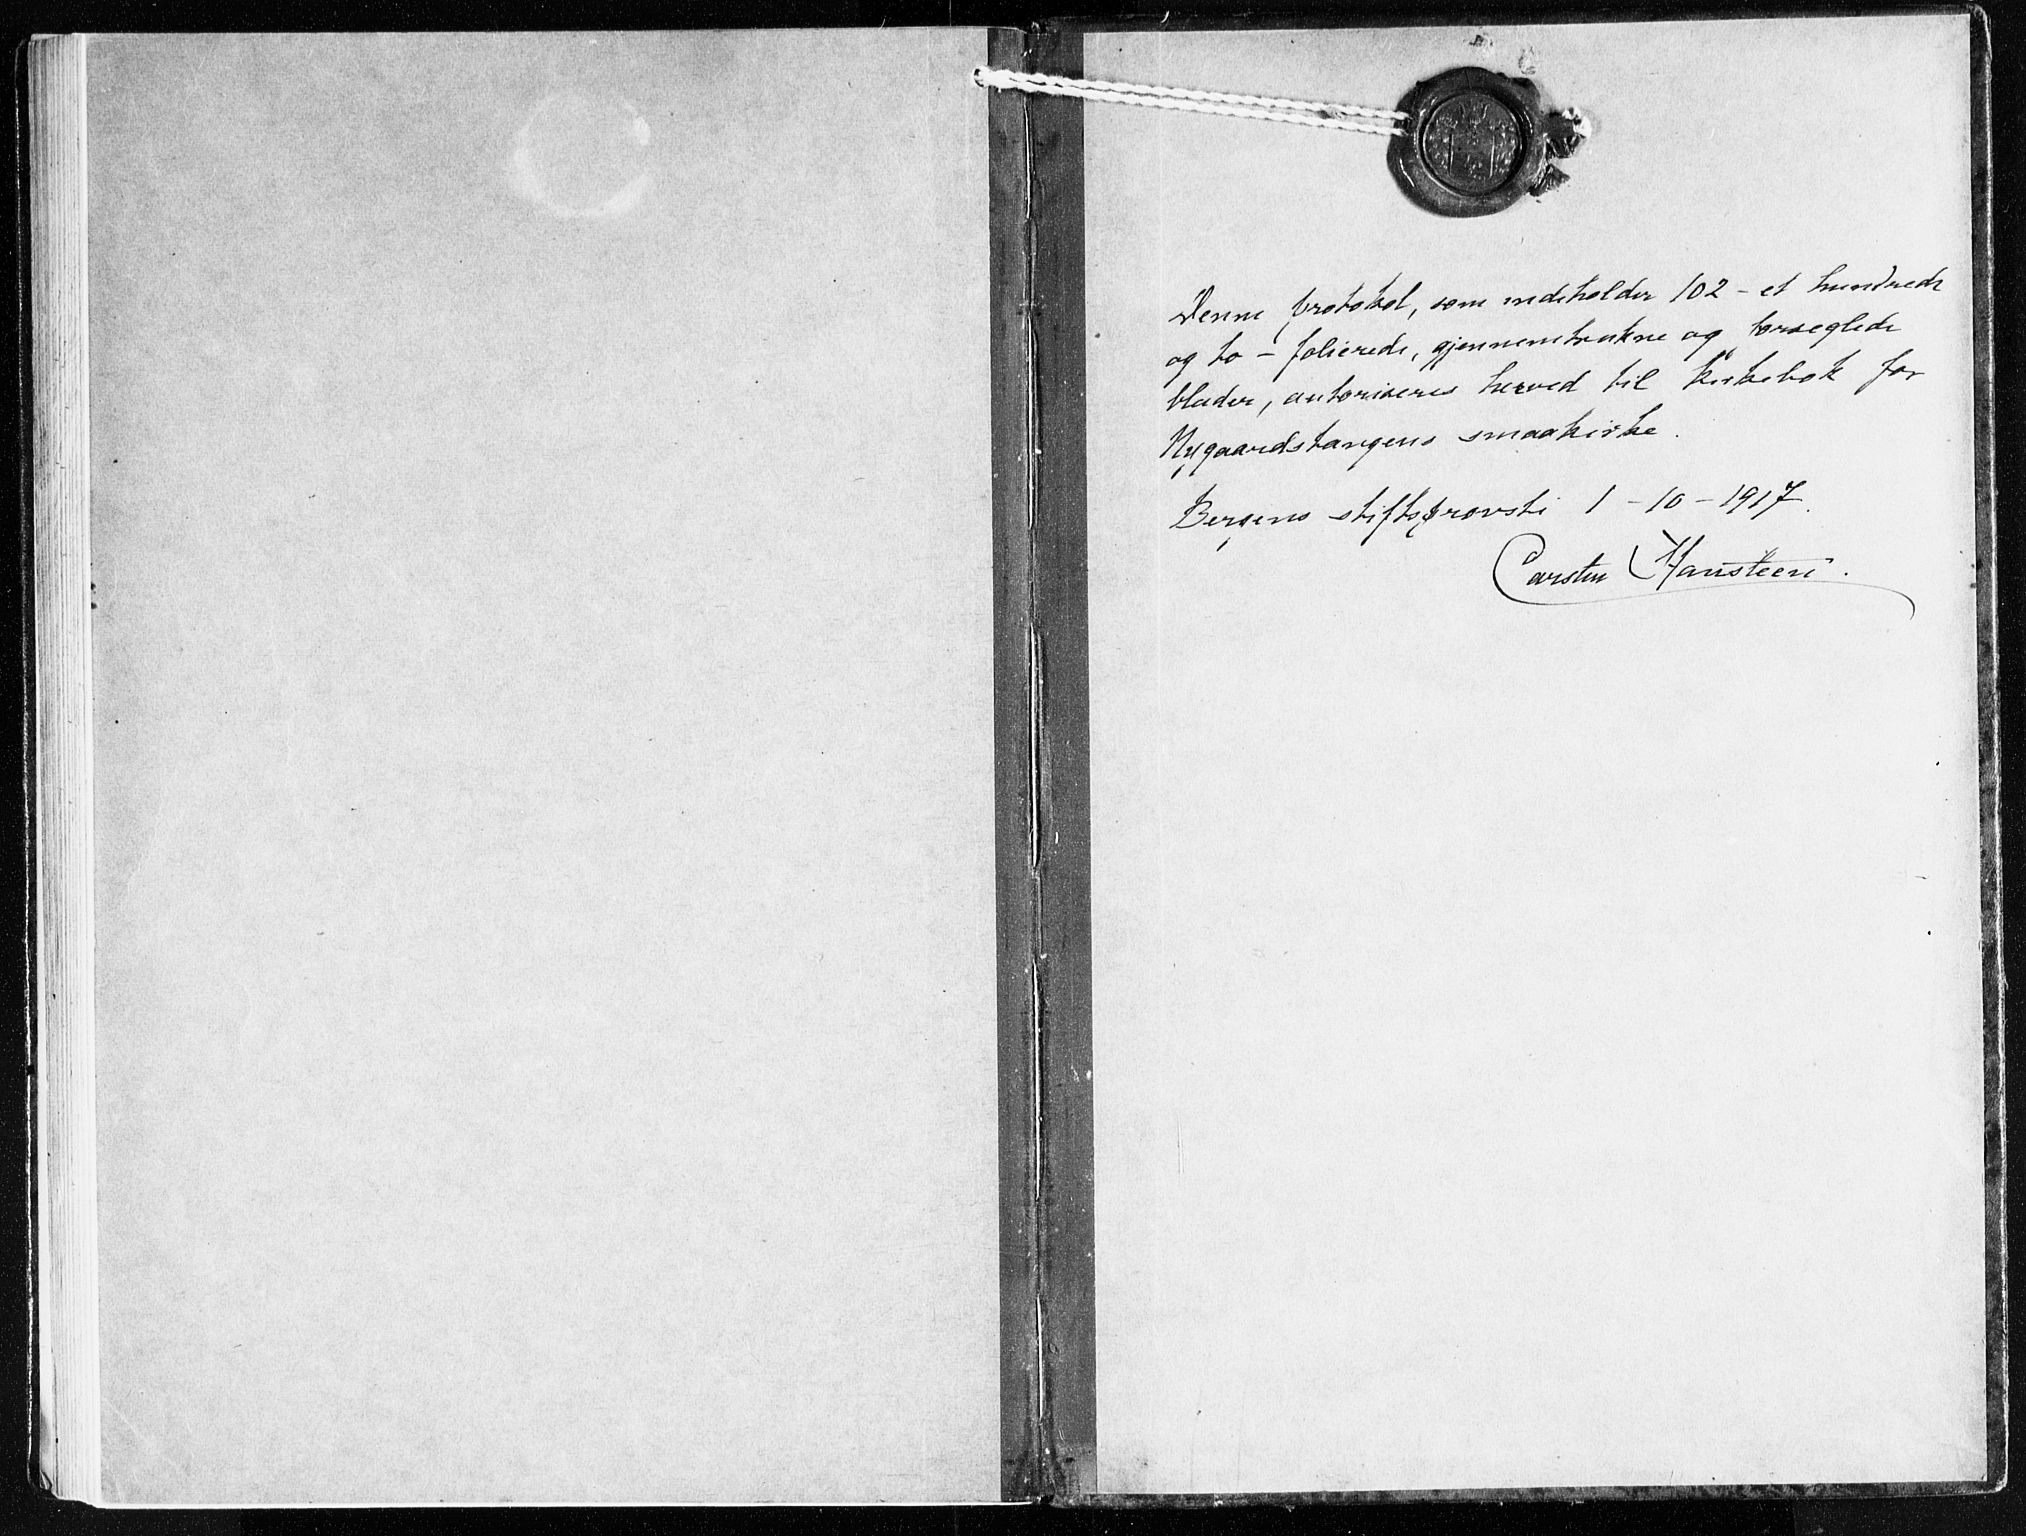 Denne protokol, som indeholder 102 – et hundrede
og to – folierede, gjennemtrukne og forseglede
blader, autoriseres herved til kirkebok for
Nygaardstangens smaakirke.
Bergens stiftsprovsti 1 – 10 – 1917.
Carsten Hansteen.